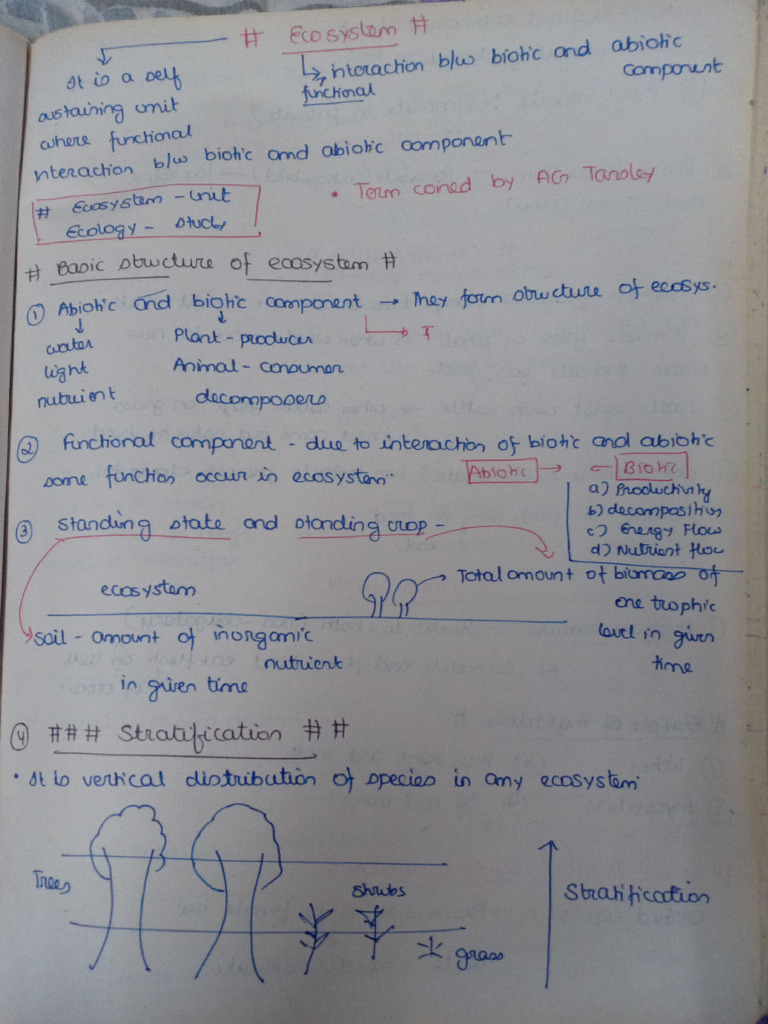 # Ecosystem #
It is a self
sustaining unit
where functional
interaction b/w biotic and abiotic component
interaction b/w biotic and abiotic
component
functional
• Term coined by AG Tansley
# Ecosystem - unit
Ecology - study
# Basic structure of ecosystem #
① Abiotic and biotic component → They form structure of ecosys.
water Plant - producer
light Animal - consumer
nutrient decomposers
② Functional component - due to interaction of biotic and abiotic
some function occur in ecosystem.
Abiotic → ← Biotic
a) Productivity
b) decomposition
c) Energy Flow
d) Nutrient flow
③ Standing state and standing crop -
ecosystem
Total amount of biomass of
one trophic
level in given
time
soil - amount of inorganic
nutrient
in given time
④ ### Stratification ##
• It is vertical distribution of species in any ecosystem.
Trees
Shrubs
grass
Stratification